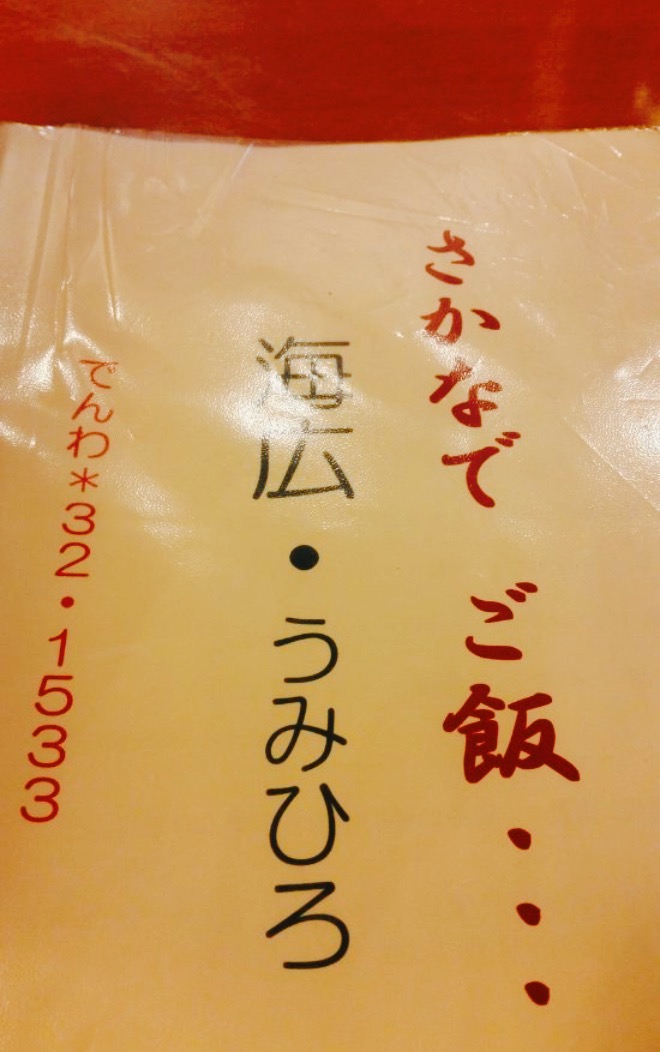 さかなで ご飯・・・
海広・うみひろ
でんわ*32・1533